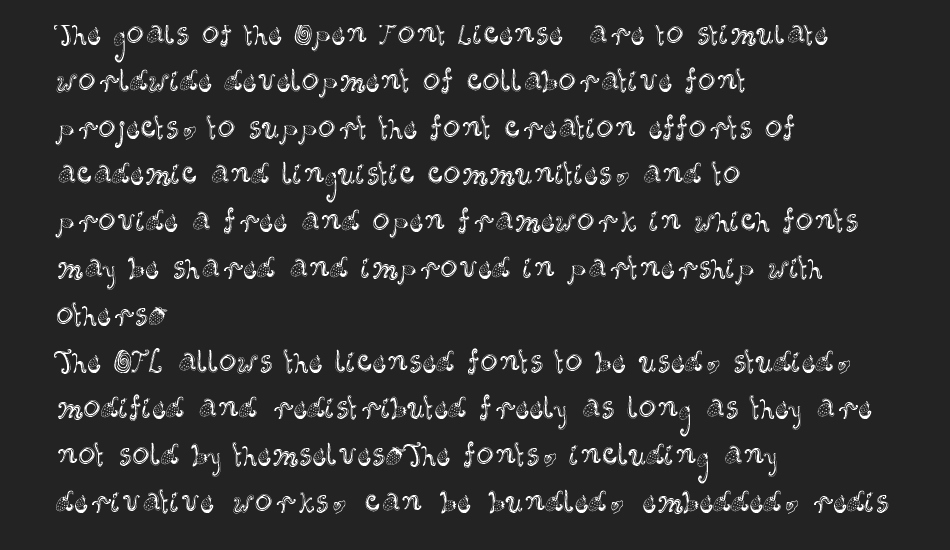 The goals of the Open Font License are to stimulate
worldwide development of collaborative font
projects, to support the font creation efforts of
academic and linguistic communities, and to
provide a free and open framework in which fonts
may be shared and improved in partnership with
others.
The OFL allows the licensed fonts to be used, studied,
modified and redistributed freely as long as they are
not sold by themselves.The fonts, including any
derivative works, can be bundled, embedded, redis